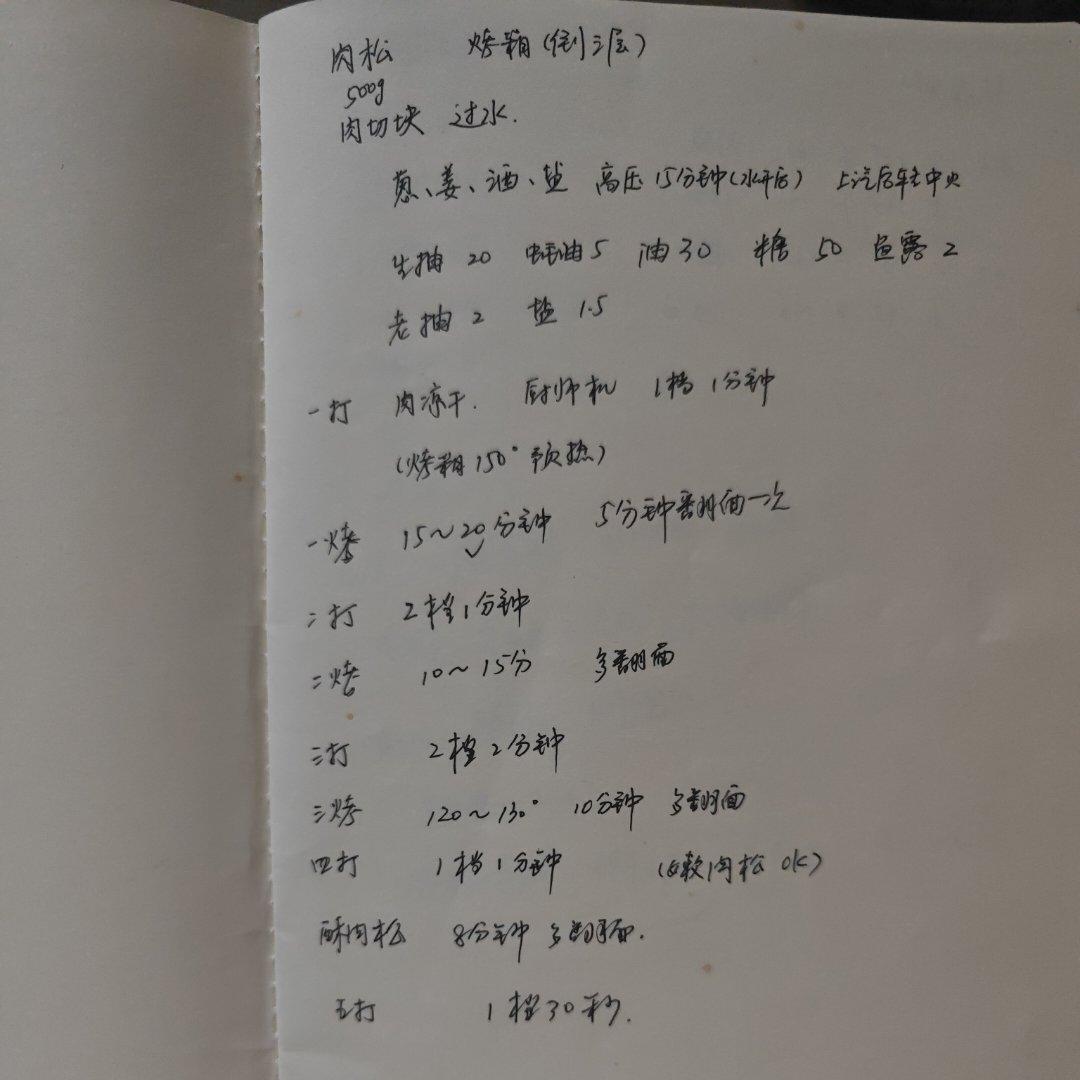 肉松 烤箱(倒二层)
500g
肉切块 过水.
葱、姜、酒、盐 高压15分钟(水开后) 上汽后转中火
生抽 20 蚝油5 油30 糖 50 鱼露 2
老抽 2 盐 1.5
一打 肉冻干. 厨师机 1档 1分钟
(烤箱150° 预热)
一烤 15~20分钟 5分钟翻面一次
二打 2档1分钟
二烤 10~15分 多翻面
三打 2档 2分钟
三烤 120~130° 10分钟 多翻面
四打 1档1分钟 (软肉松 OK)
酥肉松 8分钟 多翻面.
五打 1档30秒.